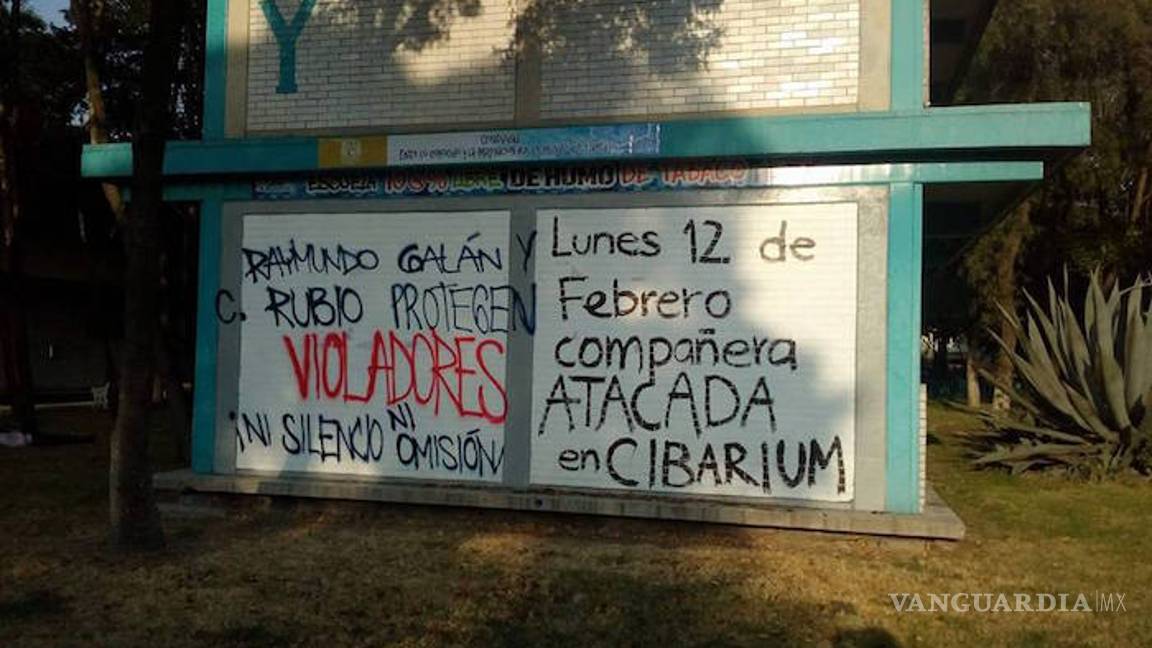 Y
ESCUELA 100% LIBRE DE HUMO DE TABACO
RAYMUNDO GALÁN Y
C. RUBIO PROTEGEN
VIOLADORES
¡NI SILENCIO NI
OMISIÓN
Lunes 12 de
Febrero
compañera
ATACADA
en CIBARIUM
VANGUARDIA|MX